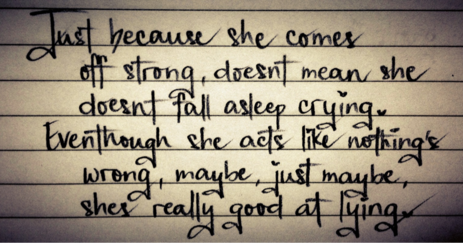 Just because she comes
off strong, doesnt mean she
doesnt fall asleep crying.
Eventhough she acts like nothing's
wrong, maybe, just maybe,
shes really good at lying.